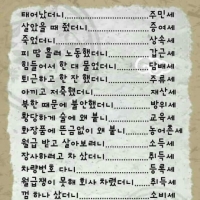 태어났더니 주민세
살았을 때 줬더니 증여세
죽었더니 상속세
피 땀 흘려 노동했더니 갑근세
힘들어서 한 대 물었더니 담배세
퇴근하고 한 잔 했더니 주류세
아끼고 저축했더니 재산세
북한 때문에 불안했더니 방위세
황당하게 술에 왜 붙니 교육세
화장품에 뜬금없이 왜 붙니 농어촌세
월급 받고 살아보려니 소득세
장사하려고 차 샀더니 취득세
차량번호 다니 등록세
월급쟁이 못해 회사 차렸더니 법인세
껌 하나 샀더니 소비세